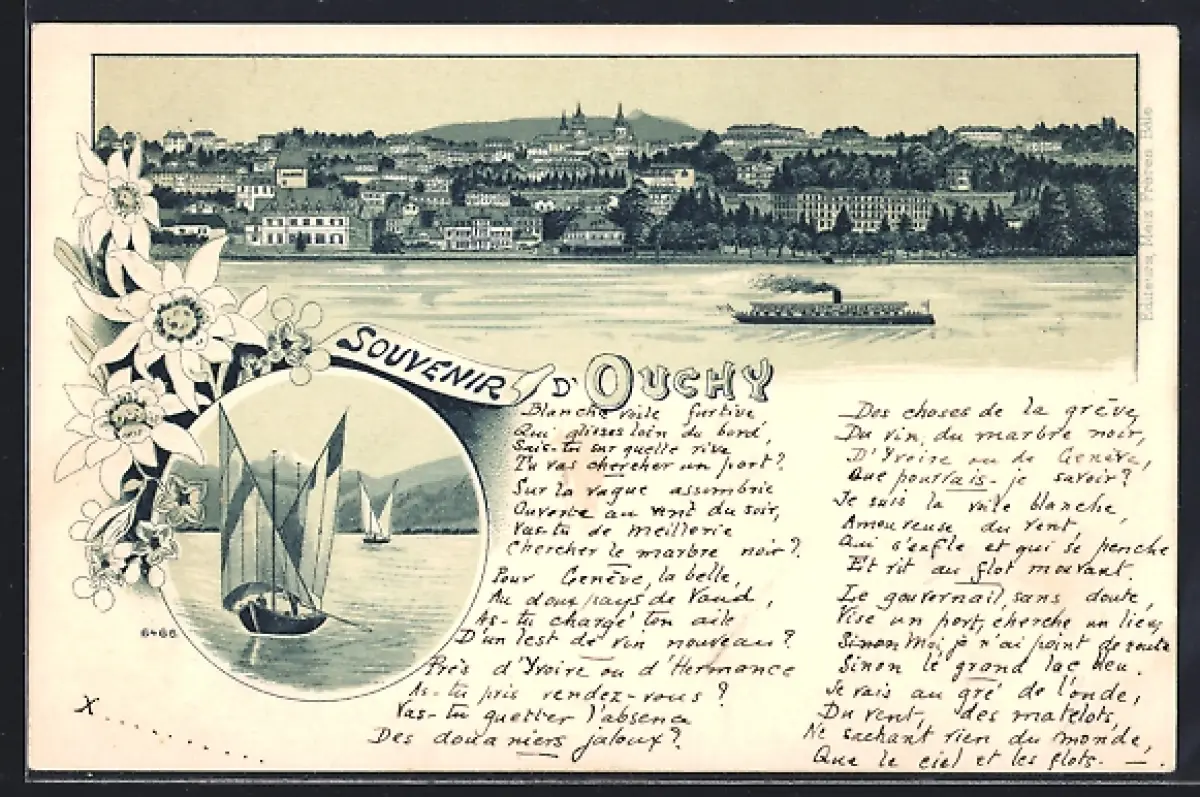 SOUVENIR D'OUCHY
Blanche voile furtive
Qui glisses loin du bord,
Sais-tu sur quelle rive
Tu vas chercher un port?
Sur la vague assombrie
Ouverte au vent du soir,
Vas-tu de Meillerie
Chercher le marbre noir?
Pour Genève, la belle,
Au doux pays de Vaud,
As-tu chargé ton aile
D'un lest de vin nouveau?
Près d'Yvoire ou d'Hermance
As-tu pris rendez-vous?
Vas-tu guetter l'absence
Des douaniers jaloux?
Des choses de la grève,
Du vin, du marbre noir,
D'Yvoire ou de Genève,
Que pourrais-je savoir?
Je suis la voile blanche,
Amoureuse du vent,
Qui s'enfle et qui se penche
Et rit au flot mouvant.
Le gouvernail, sans doute,
Vise un port, cherche un lieu,
Sinon Moi, je n'ai point de route
Sinon le grand lac bleu.
Je vais au gré de l'onde,
Du vent, des matelots,
Ne sachant rien du monde,
Que le ciel et les flots. —
6466
X..............
Editeurs Metz Frères Bâle